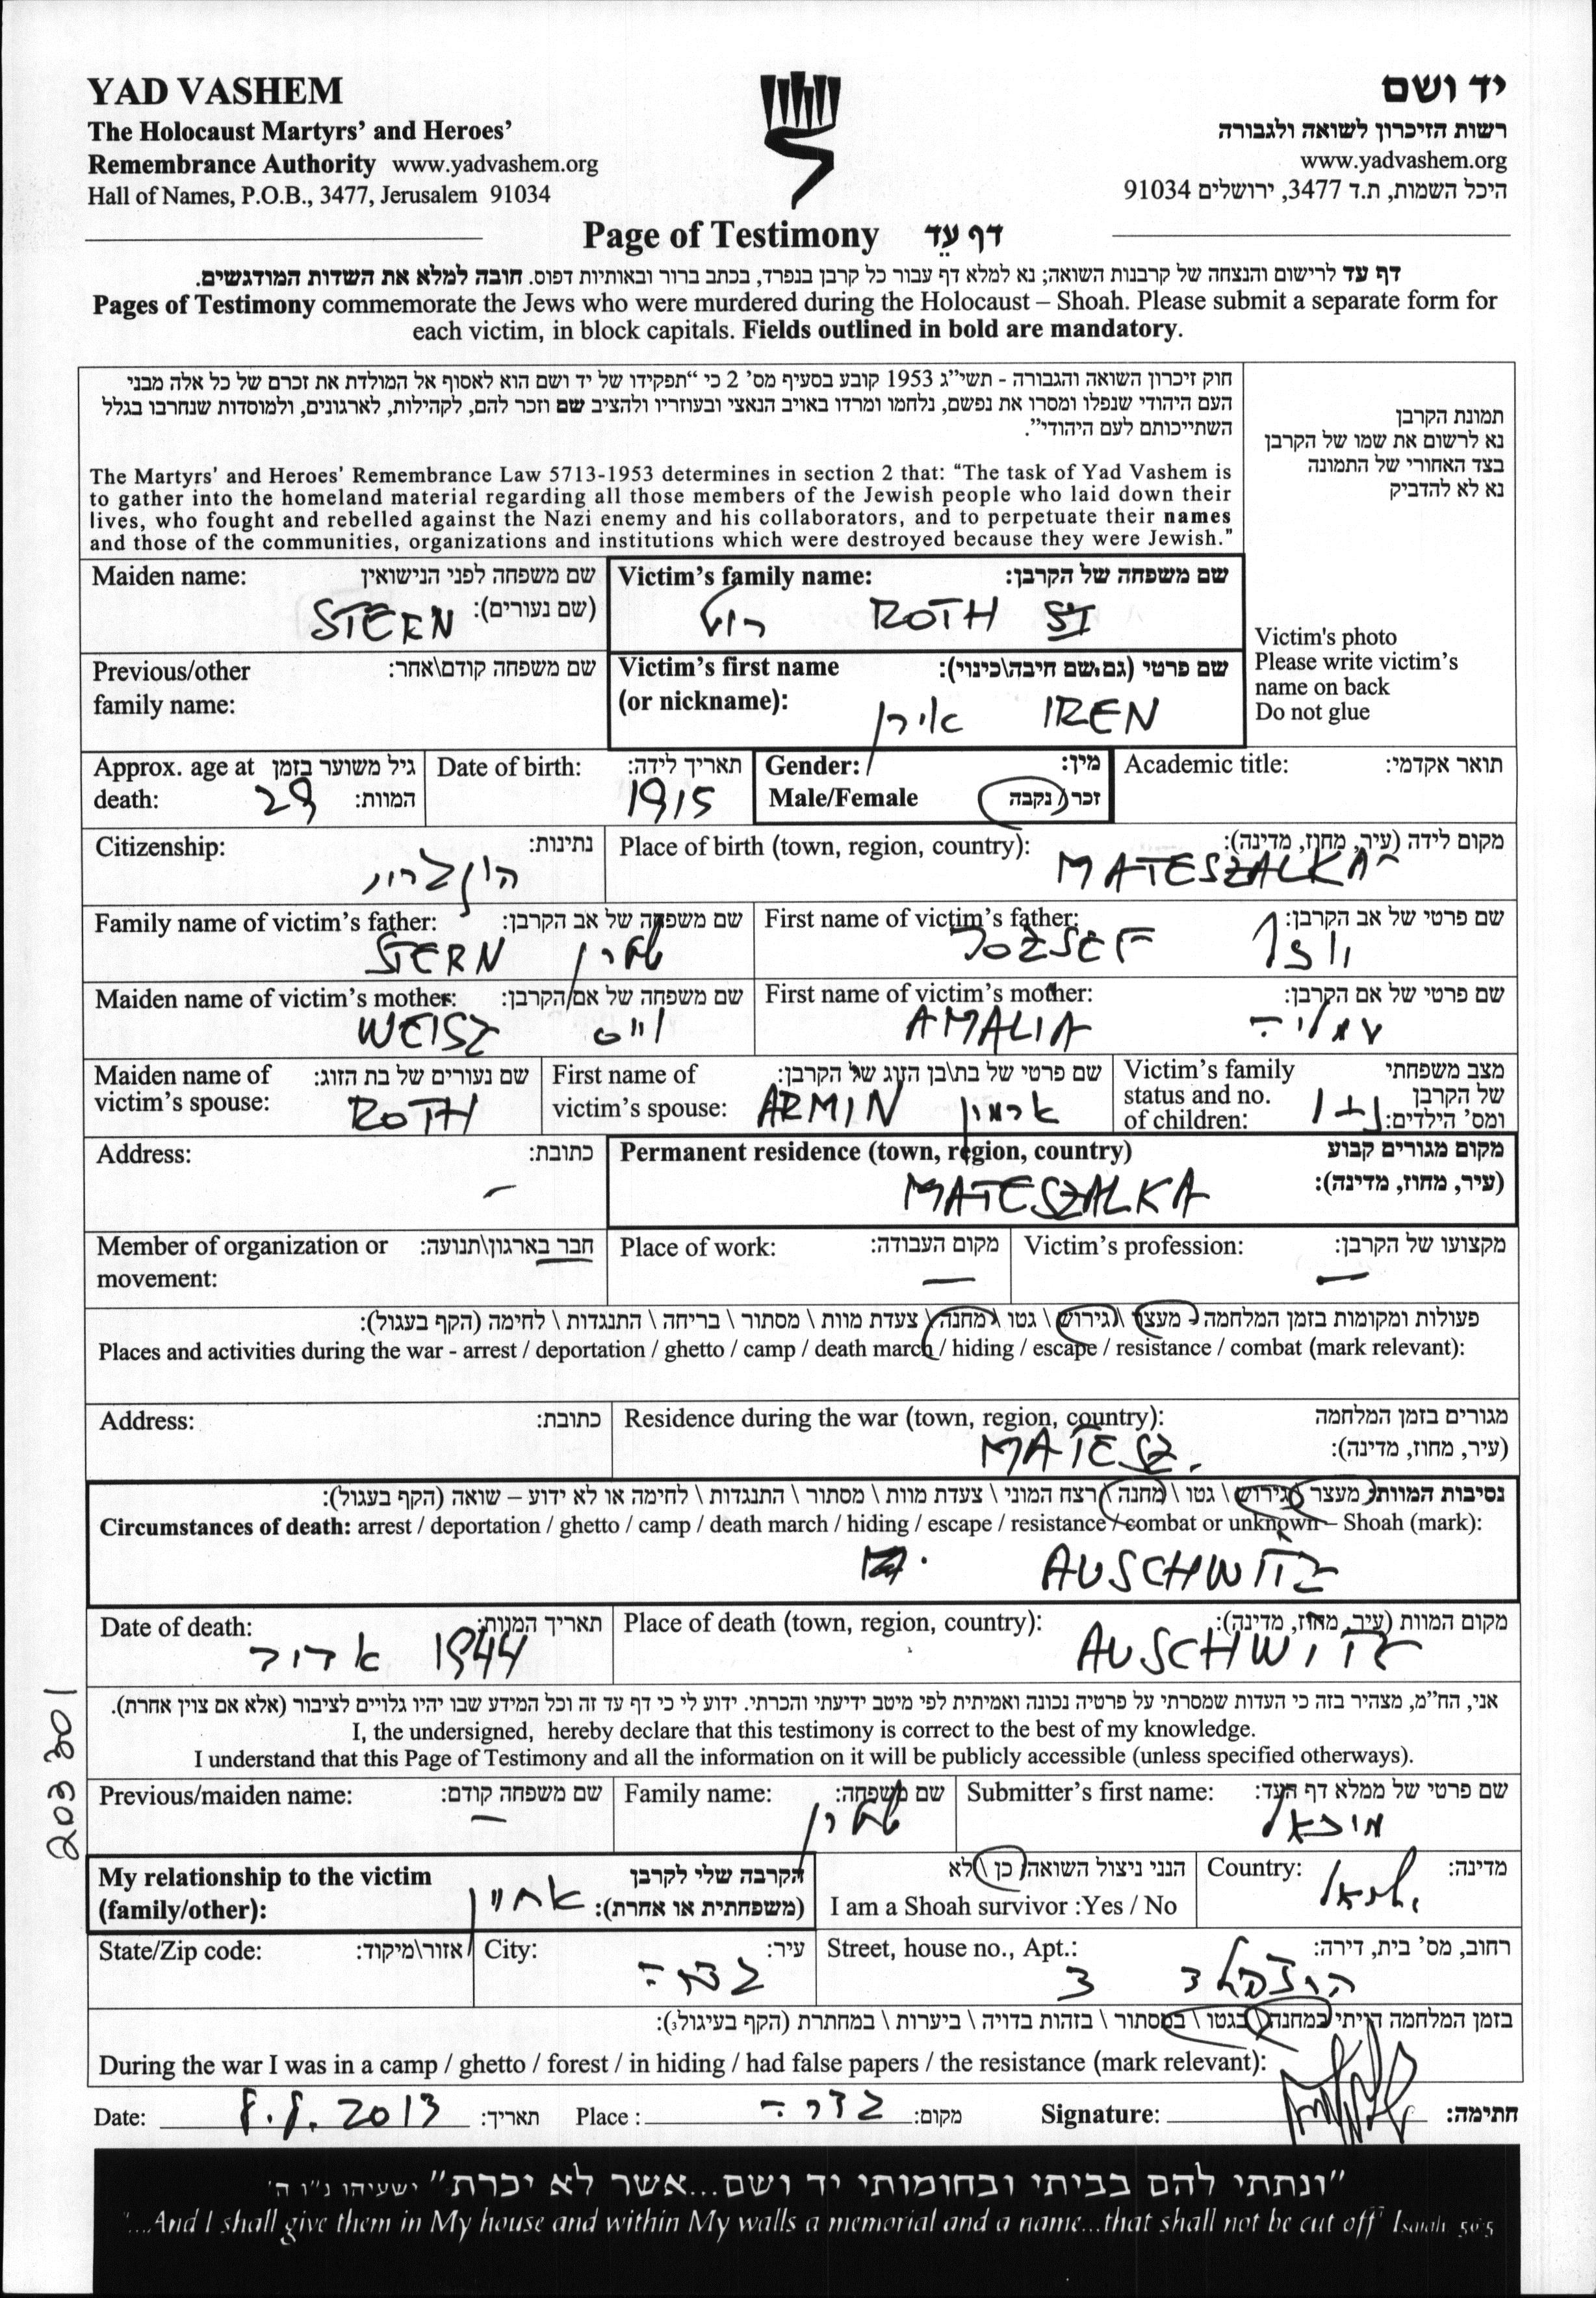 YAD VASHEM
The Holocaust Martyrs' and Heroes'
Remembrance Authority www.yadvashem.org
Hall of Names, P.O.B., 3477, Jerusalem 91034
יד ושם
רשות הזיכרון לשואה ולגבורה
www.yadvashem.org
היכל השמות, ת.ד 3477, ירושלים 91034
Page of Testimony דף עֵד
דף עד לרישום והנצחה של קרבנות השואה; נא למלא דף עבור כל קרבן בנפרד, בכתב ברור ובאותיות דפוס. חובה למלא את השדות המודגשים.
Pages of Testimony commemorate the Jews who were murdered during the Holocaust – Shoah. Please submit a separate form for
each victim, in block capitals. Fields outlined in bold are mandatory.
חוק זיכרון השואה והגבורה - תשי"ג 1953 קובע בסעיף מס' 2 כי "תפקידו של יד ושם הוא לאסוף אל המולדת את זכרם של כל אלה מבני
העם היהודי שנפלו ומסרו את נפשם, נלחמו ומרדו באויב הנאצי ובעוזריו ולהציב שם וזכר להם, לקהילות, לארגונים, ולמוסדות שנחרבו בגלל
השתייכותם לעם היהודי".
The Martyrs' and Heroes' Remembrance Law 5713-1953 determines in section 2 that: "The task of Yad Vashem is
to gather into the homeland material regarding all those members of the Jewish people who laid down their
lives, who fought and rebelled against the Nazi enemy and his collaborators, and to perpetuate their names
and those of the communities, organizations and institutions which were destroyed because they were Jewish."
תמונת הקרבן
נא לרשום את שמו של הקרבן
בצד האחורי של התמונה
נא לא להדביק
Victim's photo
Please write victim's
name on back
Do not glue
Maiden name: שם משפחה לפני הנישואין
(שם נעורים): STERN
Victim's family name: שם משפחה של הקרבן:
רוט ROTH
Previous/other שם משפחה קודם\אחר:
family name:
Victim's first name שם פרטי (גם שם חיבה\כינוי):
(or nickname): אירן IREN
Approx. age at גיל משוער בזמן
death: 29 המוות:
Date of birth: תאריך לידה:
1915
Gender: מין:
Male/Female זכר / נקבה
Academic title: תואר אקדמי:
Citizenship: נתינות:
הונגריה
Place of birth (town, region, country): מקום לידה (עיר, מחוז, מדינה):
MATESZALKA
Family name of victim's father: שם משפחה של אב הקרבן:
STERN שטרן
First name of victim's father: שם פרטי של אב הקרבן:
JOZSEF יוזף
Maiden name of victim's mother: שם משפחה של אם הקרבן:
WEISZ וייס
First name of victim's mother: שם פרטי של אם הקרבן:
AMALIA עמליה
Maiden name of שם נעורים של בת הזוג:
victim's spouse: ROTH
First name of שם פרטי של בת\בן הזוג של הקרבן:
victim's spouse: ARMIN ארמין
Victim's family מצב משפחתי
status and no. של הקרבן
of children: ומס' הילדים: נ+1
Address: כתובת:
–
Permanent residence (town, region, country) מקום מגורים קבוע
(עיר, מחוז, מדינה): MATESZALKA
Member of organization or חבר בארגון\תנועה:
movement:
Place of work: מקום העבודה:
—
Victim's profession: מקצועו של הקרבן:
—
פעולות ומקומות בזמן המלחמה - מעצר \ גירוש \ גטו \ מחנה \ צעדת מוות \ מסתור \ בריחה \ התנגדות \ לחימה (הקף בעגול):
Places and activities during the war - arrest / deportation / ghetto / camp / death march / hiding / escape / resistance / combat (mark relevant):
Address: כתובת:
Residence during the war (town, region, country): מגורים בזמן המלחמה
(עיר, מחוז, מדינה): MATESZ.
נסיבות המוות: מעצר \ גירוש \ גטו \ מחנה \ רצח המוני \ צעדת מוות \ מסתור \ התנגדות \ לחימה או לא ידוע – שואה (הקף בעגול):
Circumstances of death: arrest / deportation / ghetto / camp / death march / hiding / escape / resistance / combat or unknown – Shoah (mark):
AUSCHWITZ
Date of death: תאריך המוות:
1944
Place of death (town, region, country): מקום המוות (עיר, מחוז, מדינה):
AUSCHWITZ
אני, הח"מ, מצהיר בזה כי העדות שמסרתי על פרטיה נכונה ואמיתית לפי מיטב ידיעתי והכרתי. ידוע לי כי דף עד זה וכל המידע שבו יהיו גלויים לציבור (אלא אם צוין אחרת).
I, the undersigned, hereby declare that this testimony is correct to the best of my knowledge.
I understand that this Page of Testimony and all the information on it will be publicly accessible (unless specified otherways).
203 301
Previous/maiden name: שם משפחה קודם:
–
Family name: שם משפחה:
שטרן
Submitter's first name: שם פרטי של ממלא דף העד:
מיכאל
My relationship to the victim הקרבה שלי לקרבן
(family/other): (משפחתית או אחרת): אחיין
הנני ניצול השואה: כן \ לא
I am a Shoah survivor :Yes / No
Country: מדינה:
ישראל
State/Zip code: אזור\מיקוד:
City: עיר:
גדרה
Street, house no., Apt.: רחוב, מס' בית, דירה:
3
בזמן המלחמה הייתי במחנה \ בגטו \ במסתור \ בזהות בדויה \ ביערות \ במחתרת (הקף בעיגול):
During the war I was in a camp / ghetto / forest / in hiding / had false papers / the resistance (mark relevant):
Date: 8.8.2013 תאריך: Place : גדרה מקום: Signature: חתימה:
"ונתתי להם בביתי ובחומותי יד ושם...אשר לא יכרת" ישעיהו נ"ו ה'
"...And I shall give them in My house and within My walls a memorial and a name...that shall not be cut off" Isaiah 56:5